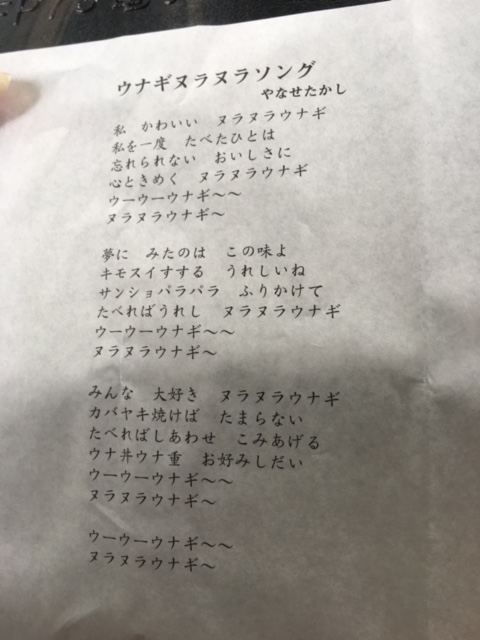 ウナギヌラヌラソング
やなせたかし
私　かわいい　ヌラヌラウナギ
私を一度　たべたひとは
忘れられない　おいしさに
心ときめく　ヌラヌラウナギ
ウーウーウナギ～～
ヌラヌラウナギ～
夢に　みたのは　この味よ
キモスイすする　うれしいね
サンショパラパラ　ふりかけて
たべればうれし　ヌラヌラウナギ
ウーウーウナギ～～
ヌラヌラウナギ～
みんな　大好き　ヌラヌラウナギ
カバヤキ焼けば　たまらない
たべればしあわせ　こみあげる
ウナ丼ウナ重　お好みしだい
ウーウーウナギ～～
ヌラヌラウナギ～
ウーウーウナギ～～
ヌラヌラウナギ～